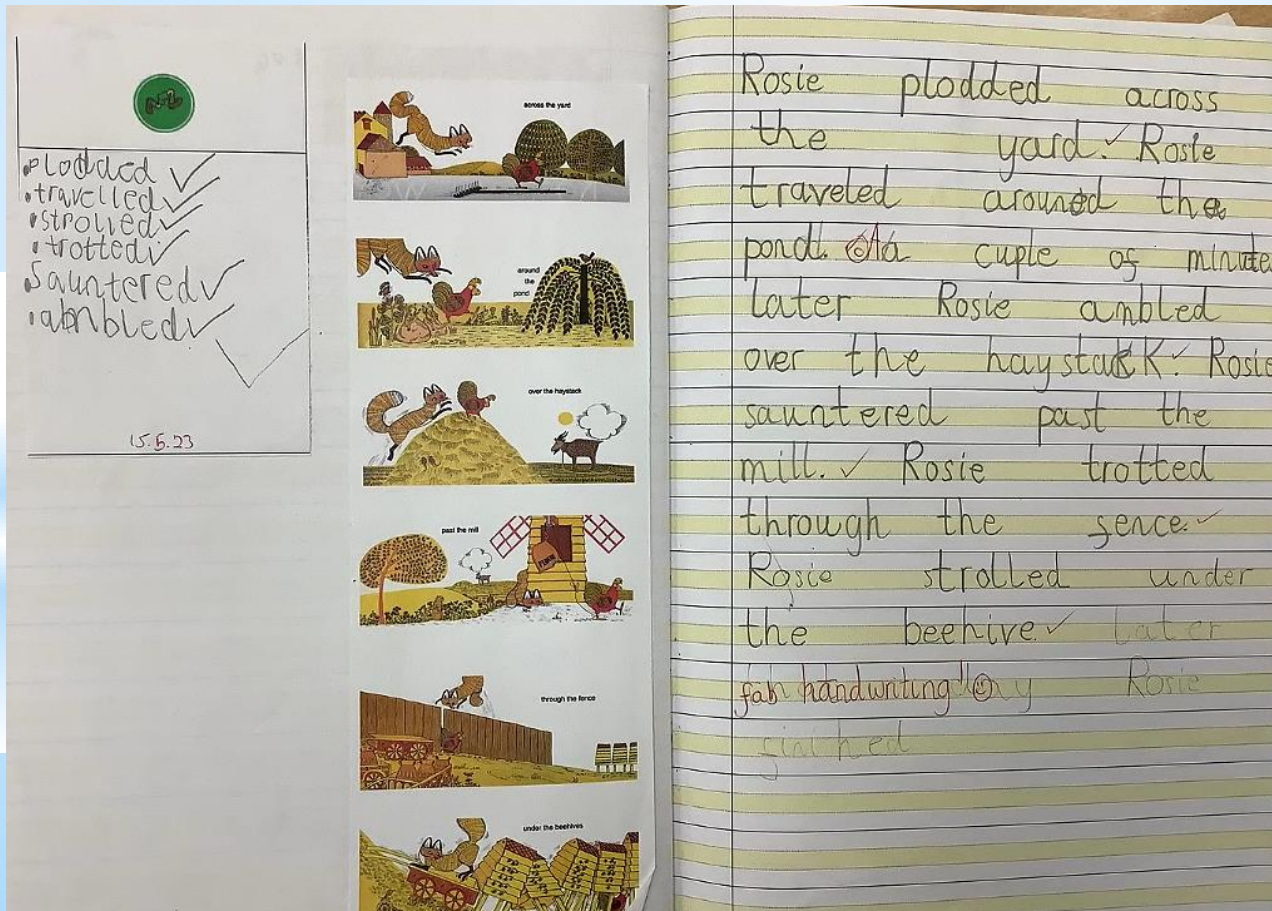 plodded
travelled
strolled
trotted
Sauntered
ambled
15.5.23
across the yard
around
the
pond
over the haystack
past the mill
through the fence
under the beehives
Rosie plodded across
the yard. Rosie
traveled around the
pond. A cuple of minutes
later Rosie ambled
over the haystack. Rosie
sauntered past the
mill. Rosie trotted
through the sence.
Rosie strolled under
the beehive. later
fab handwriting! Rosie